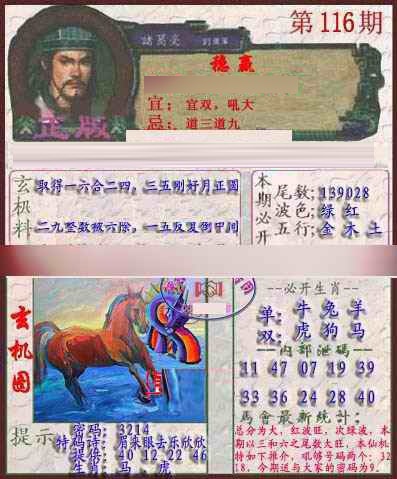 第116期
諸葛亮
稳赢
宜:宜双,吼大
忌:道三道九
正版
玄机料
取得一六合二四,三五刚好月正圆
二九整数被六除,一五反复倒中间
本期必开
尾数:139028
波色:绿 红
五行:金 木 土
玄机图
--必开生肖--
单:牛 兔 羊
双:虎 狗 马
--内部泄码--
11 47 07 19 39
33 36 24 28 40
馬會最新統計:
总分为大,红波旺,次绿波,本
期以三和六之尾数大旺,本仙机
特如下推介,吼够号码两个:32
18,今期送与大家的密码为9.
提示
密码:3214
特码诗:眉来眼去乐欣欣
特码:40 12 22 46
生肖:马、虎